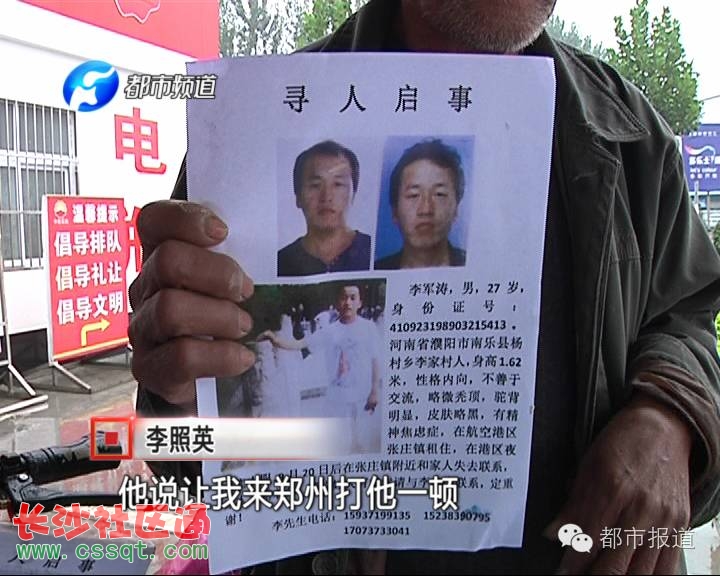 都市频道
寻人启事
电
温馨提示
倡导排队
倡导礼让
倡导文明
李军涛,男,27岁,
身份证号:
410923198903215413。
河南省濮阳市南乐县杨
村乡李家村人,身高1.62
米,性格内向,不善于
交流,略微秃顶,驼背
明显,皮肤略黑,有精
神焦虑症,在航空港区
张庄镇租住,在港区夜
月20日后在张庄镇附近和家人失去联系,
请与李 联系,定重
谢!
李先生电话:15937199135 15238390795
17073733041
李照英
他说让我来郑州打他一顿
长沙社区通
www.cssqt.com
都市报道
寻人启事